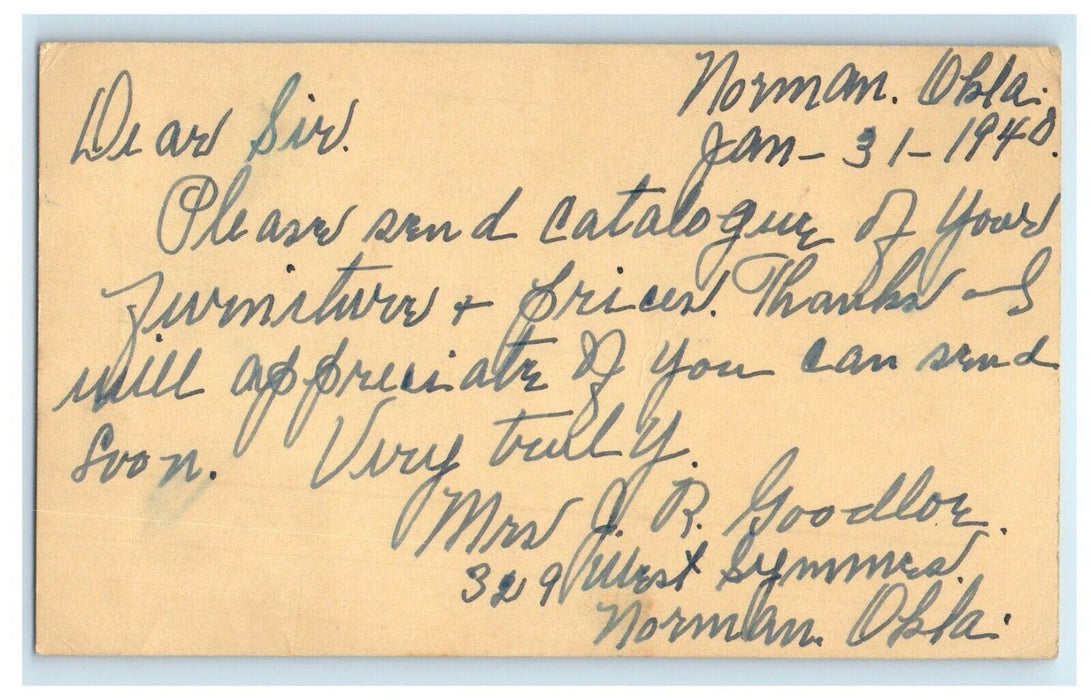 Norman. Okla.
Jan - 31 - 1940.
Dear Sir.
Please send catalogue of your
furniture + prices. Thanks - I
will appreciate if you can send
soon. Very truly.
Mrs J. R. Goodloe.
329 West Symmes.
Norman. Okla.